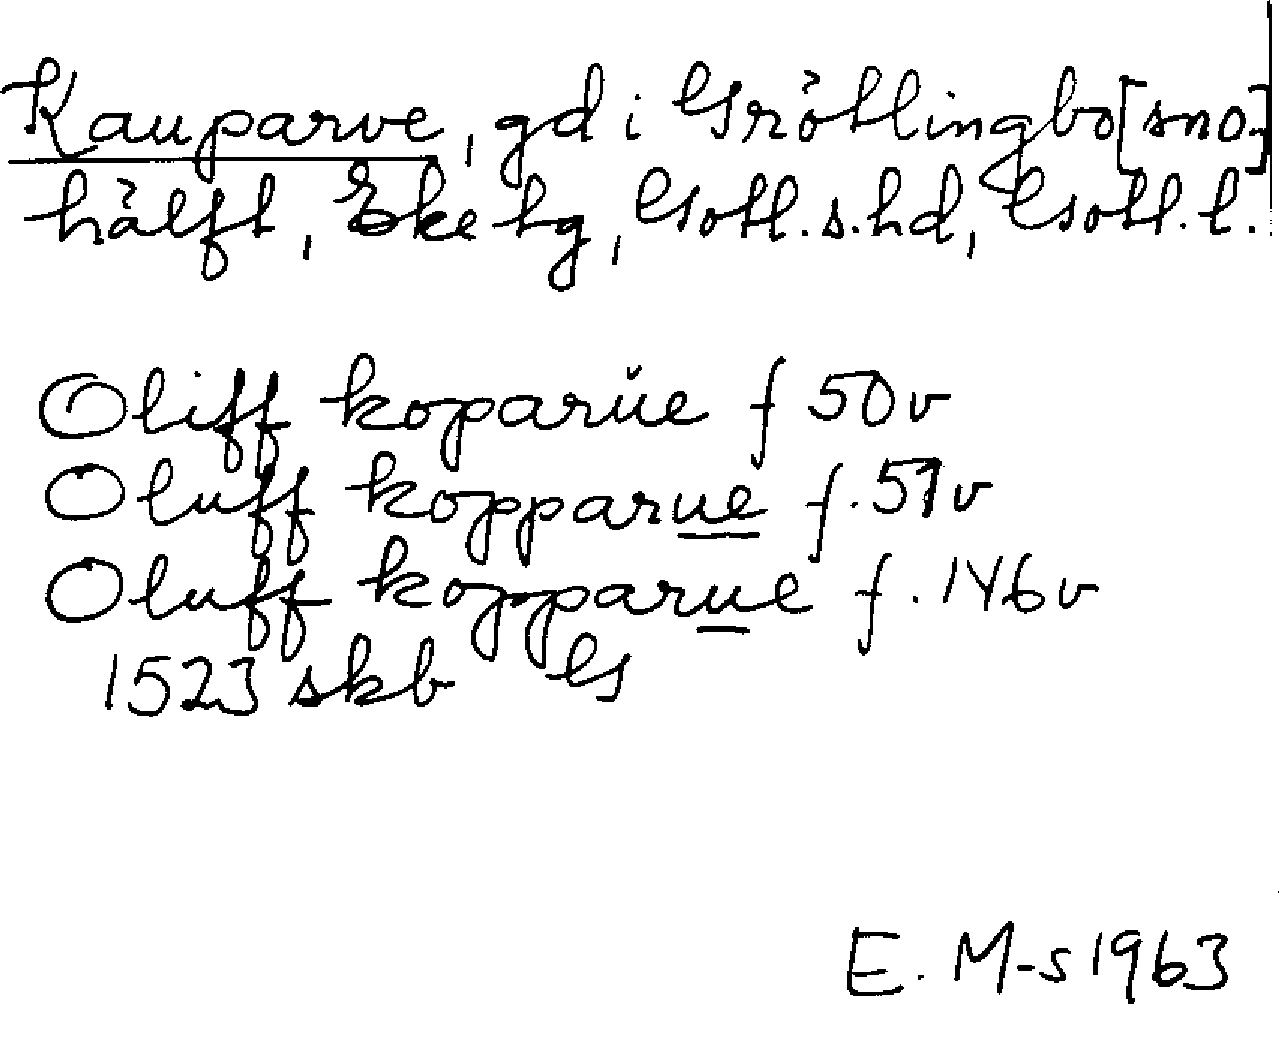 Kauparve, gd i Grötlingbo [sno-]
hälft, Eke tg, Gotl. s. hd, Gotl. l.
Oliff koparŭe f 50v
Oluff kopparue f. 51v
Oluff kopparue f. 146v
1523 skb G
E. M-s 1963